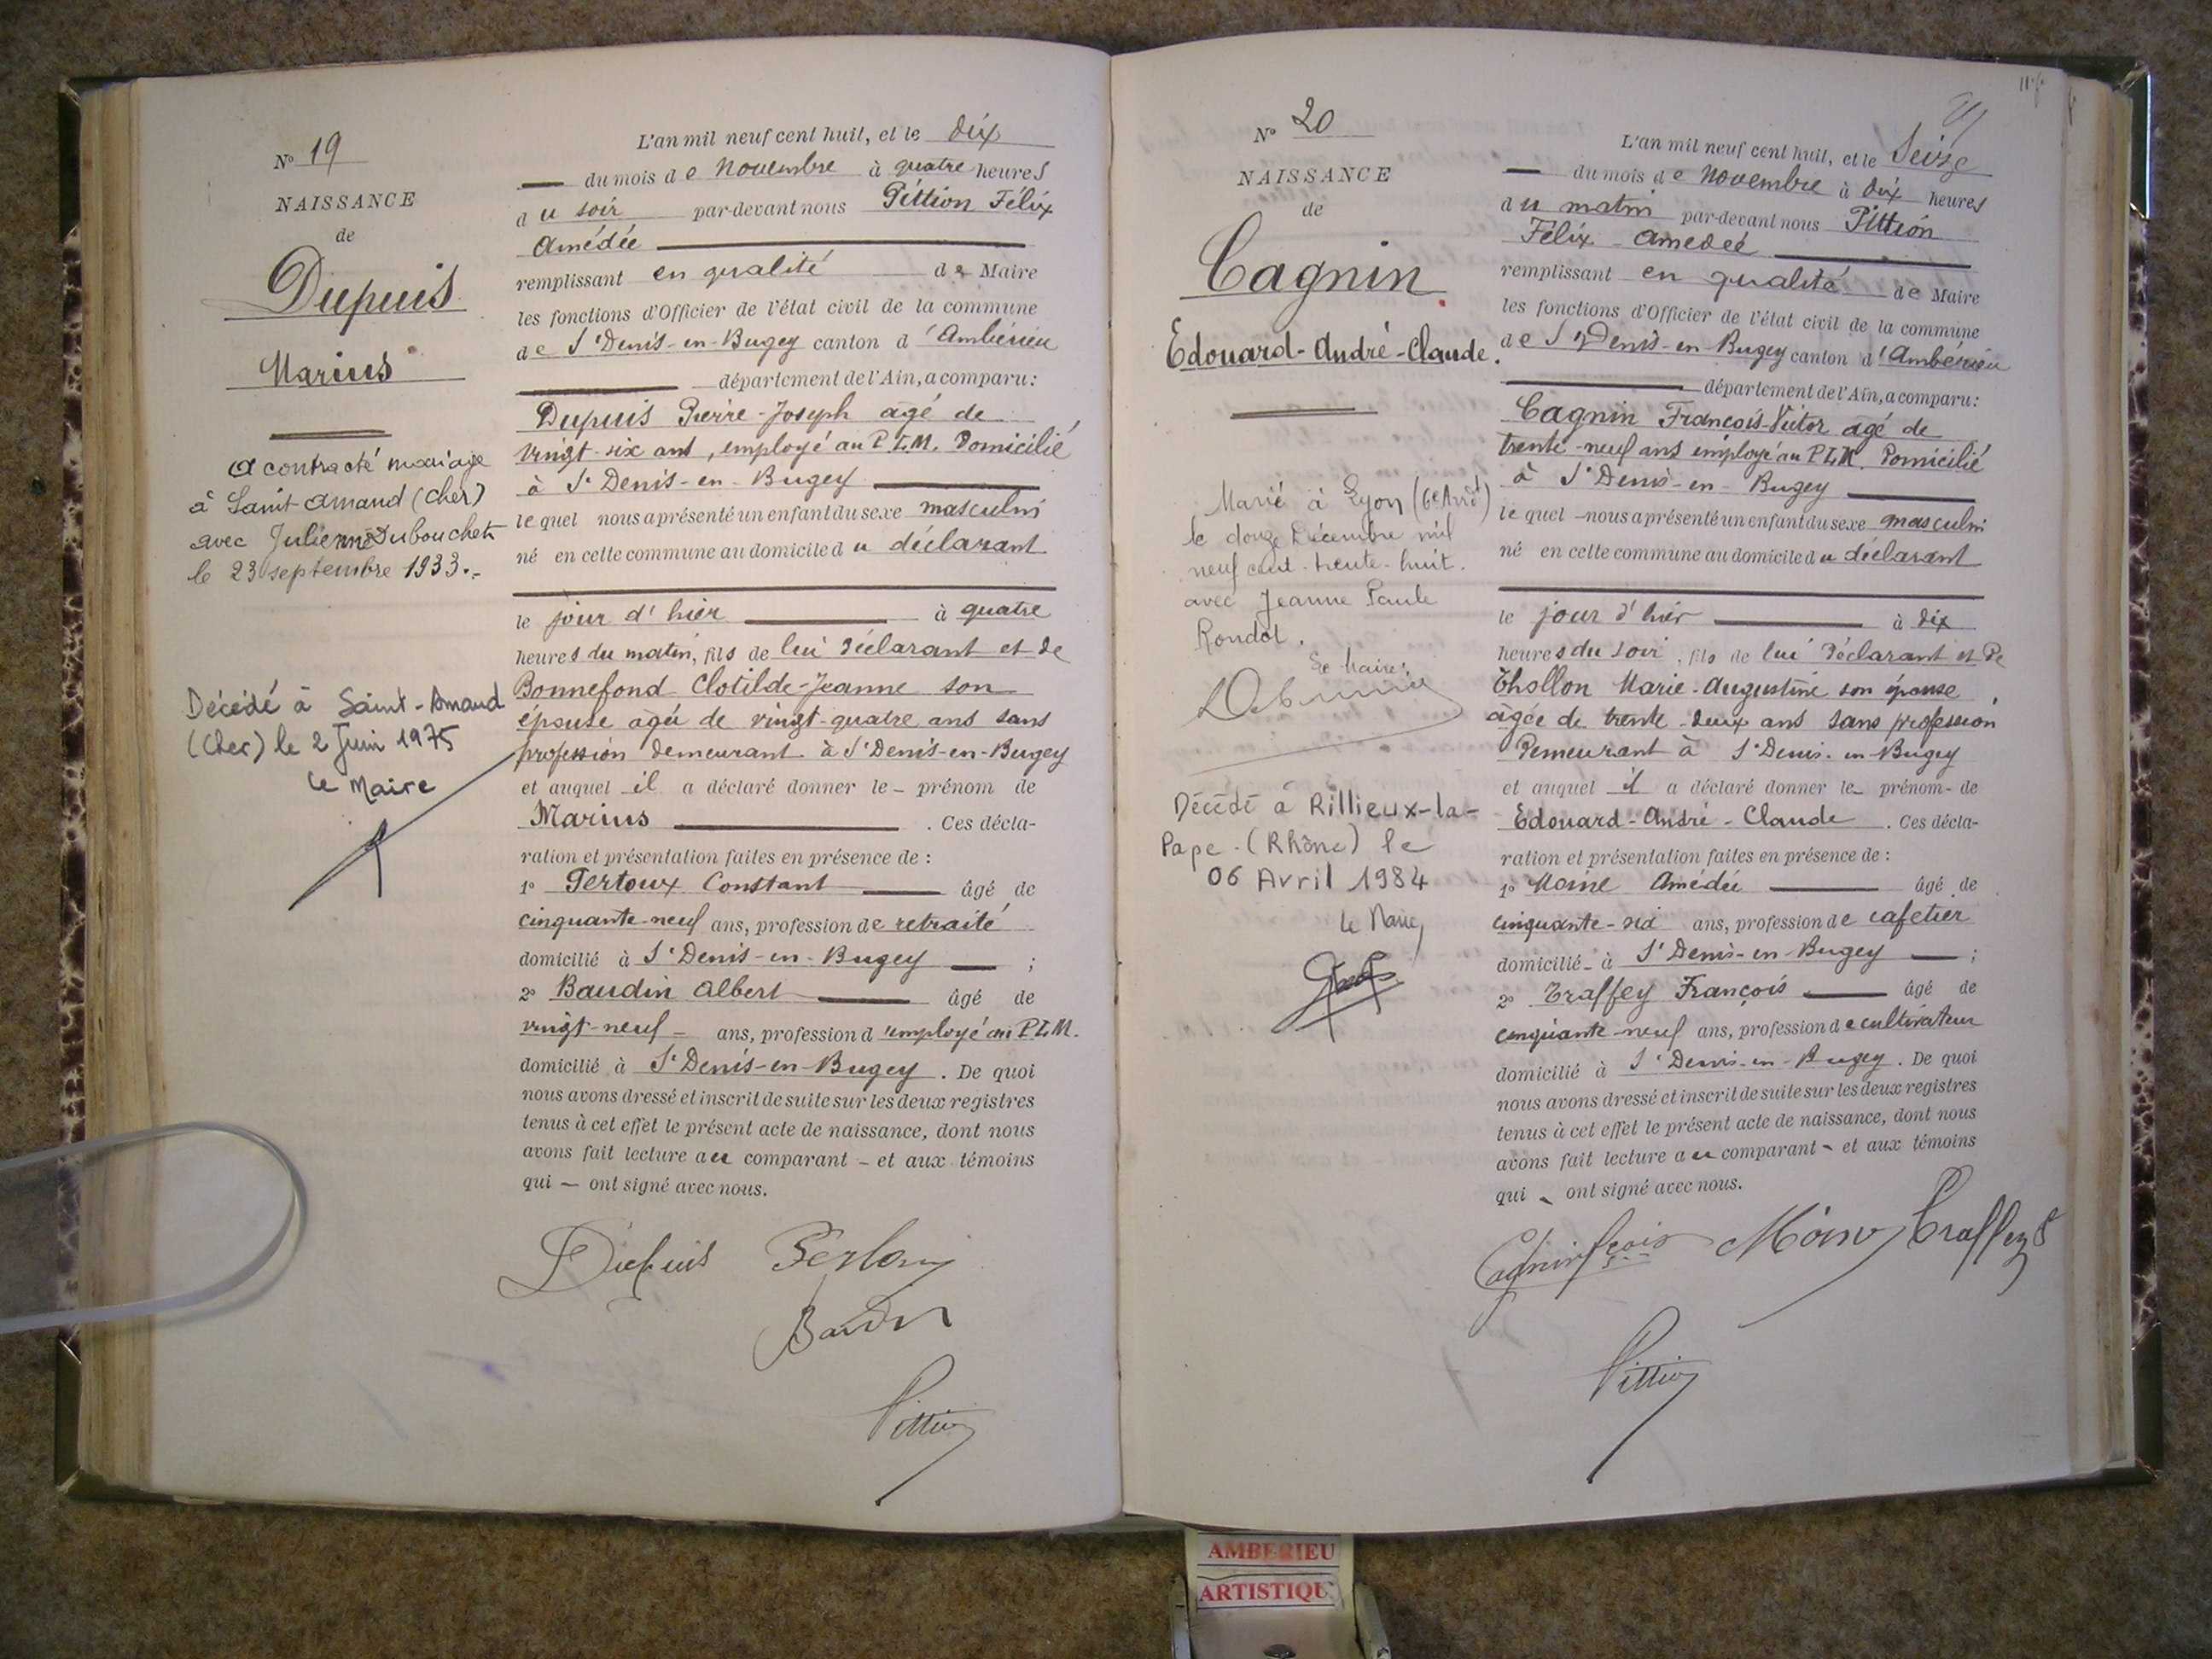 N° 19
NAISSANCE
de
Dupuis
Marius
a contracté mariage
à Saint-Amand (Cher)
avec Julienne Dubouchet
le 23 septembre 1933.-
Décédé à Saint-Amand
(Cher) le 2 Juin 1975
Le Maire
L'an mil neuf cent huit, et le dix
du mois de Novembre à quatre heures
du soir par-devant nous Pittion Félix
Amédée
remplissant en qualité de Maire
les fonctions d'Officier de l'état civil de la commune
de St Denis-en-Bugey canton d'Ambérieu
département de l'Ain, a comparu:
Dupuis Pierre-Joseph agé de
vingt-six ans, employé au P.L.M. Domicilié
à St Denis-en-Bugey
lequel nous a présenté un enfant du sexe masculin
né en cette commune au domicile du déclarant
le jour d'hier à quatre
heures du matin, fils de lui déclarant et de
Bonnefond Clotilde-Jeanne son
épouse agée de vingt-quatre ans sans
profession demeurant à St Denis-en-Bugey
et auquel il a déclaré donner le - prénom de
Marius . Ces décla-
ration et présentation faites en présence de :
1° Pertoux Constant âgé de
cinquante-neuf ans, profession de retraité
domicilié à St Denis-en-Bugey ;
2° Baudin Albert âgé de
vingt-neuf - ans, profession d'employé au P.L.M.
domicilié à St Denis-en-Bugey . De quoi
nous avons dressé et inscrit de suite sur les deux registres
tenus à cet effet le présent acte de naissance, dont nous
avons fait lecture au comparant - et aux témoins
qui - ont signé avec nous.
Dupuis Pertoux
Baudin
Pittion
N° 20
NAISSANCE
de
Cagnin
Edouard-André-Claude.
Marié à Lyon (6e Arrdt)
le douze Décembre mil
neuf cent-trente-huit.
avec Jeanne Paule
Rondot.
Le Maire
Décédé à Rillieux-la-
Pape. (Rhône) le
06 Avril 1984
Le Maire,
L'an mil neuf cent huit, et le Seize
du mois de Novembre à dix heures
du matin par-devant nous Pittion
Félix Amédée
remplissant en qualité de Maire
les fonctions d'Officier de l'état civil de la commune
de St Denis-en-Bugey canton d'Ambérieu
département de l'Ain, a comparu:
Cagnin François-Victor agé de
trente-neuf ans employé au P.L.M. Domicilié
à St Denis-en-Bugey
lequel nous a présenté un enfant du sexe masculin
né en cette commune au domicile du déclarant
le jour d'hier à dix
heures du soir, fils de lui déclarant et de
Thollon Marie-Augustine son épouse
âgée de trente-deux ans sans profession
Demeurant à St Denis-en-Bugey
et auquel il a déclaré donner le - prénom - de
Edouard-André-Claude . Ces décla-
ration et présentation faites en présence de :
1° Moine Amédée âgé de
cinquante-six ans, profession de cafetier
domicilié - à St Denis-en-Bugey ;
2° Traffey François âgé de
cinquante-neuf ans, profession de cultivateur
domicilié à St Denis-en-Bugey . De quoi
nous avons dressé et inscrit de suite sur les deux registres
tenus à cet effet le présent acte de naissance, dont nous
avons fait lecture au comparant - et aux témoins
qui - ont signé avec nous.
Cagnin fçois Moine Traffey
Pittion
AMBERIEU
ARTISTIQU